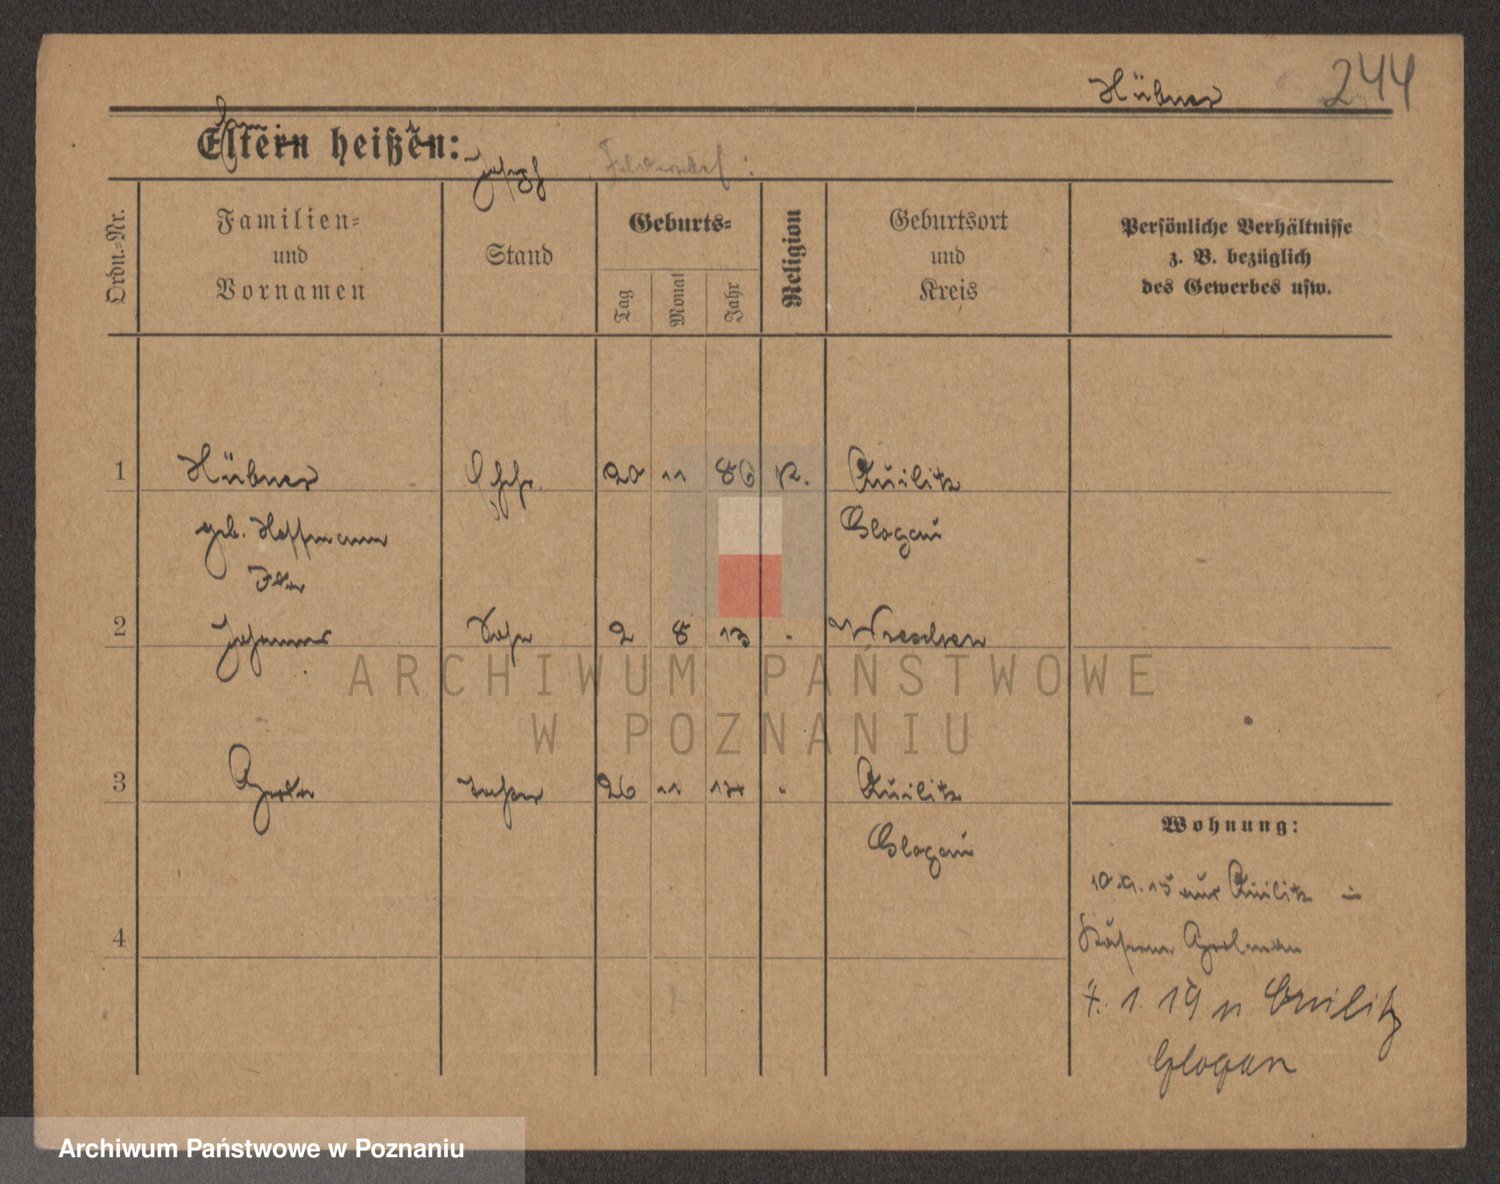 Hübner 244
Eltern heißen:
Joseph
Ordn.-Nr.
Familien-
und
Vornamen
Stand
Geburts-
Tag
Monat
Jahr
Religion
Geburtsort
und
Kreis
Persönliche Verhältnisse
z. B. bezüglich
des Gewerbes usw.
1 Hübner 20 11 86 K. Quilitz
geb. Hoffmann Glogau
Ida
2 Johannes Sohn 2 8 13 Wreschen
3 26 11 14 Quilitz
Glogau
4
Wohnung:
10.9.15 aus Quilitz in
Kaserne Grolman
7. 1. 19 n Quilitz
Glogau
ARCHIWUM PAŃSTWOWE
W POZNANIU
Archiwum Państwowe w Poznaniu